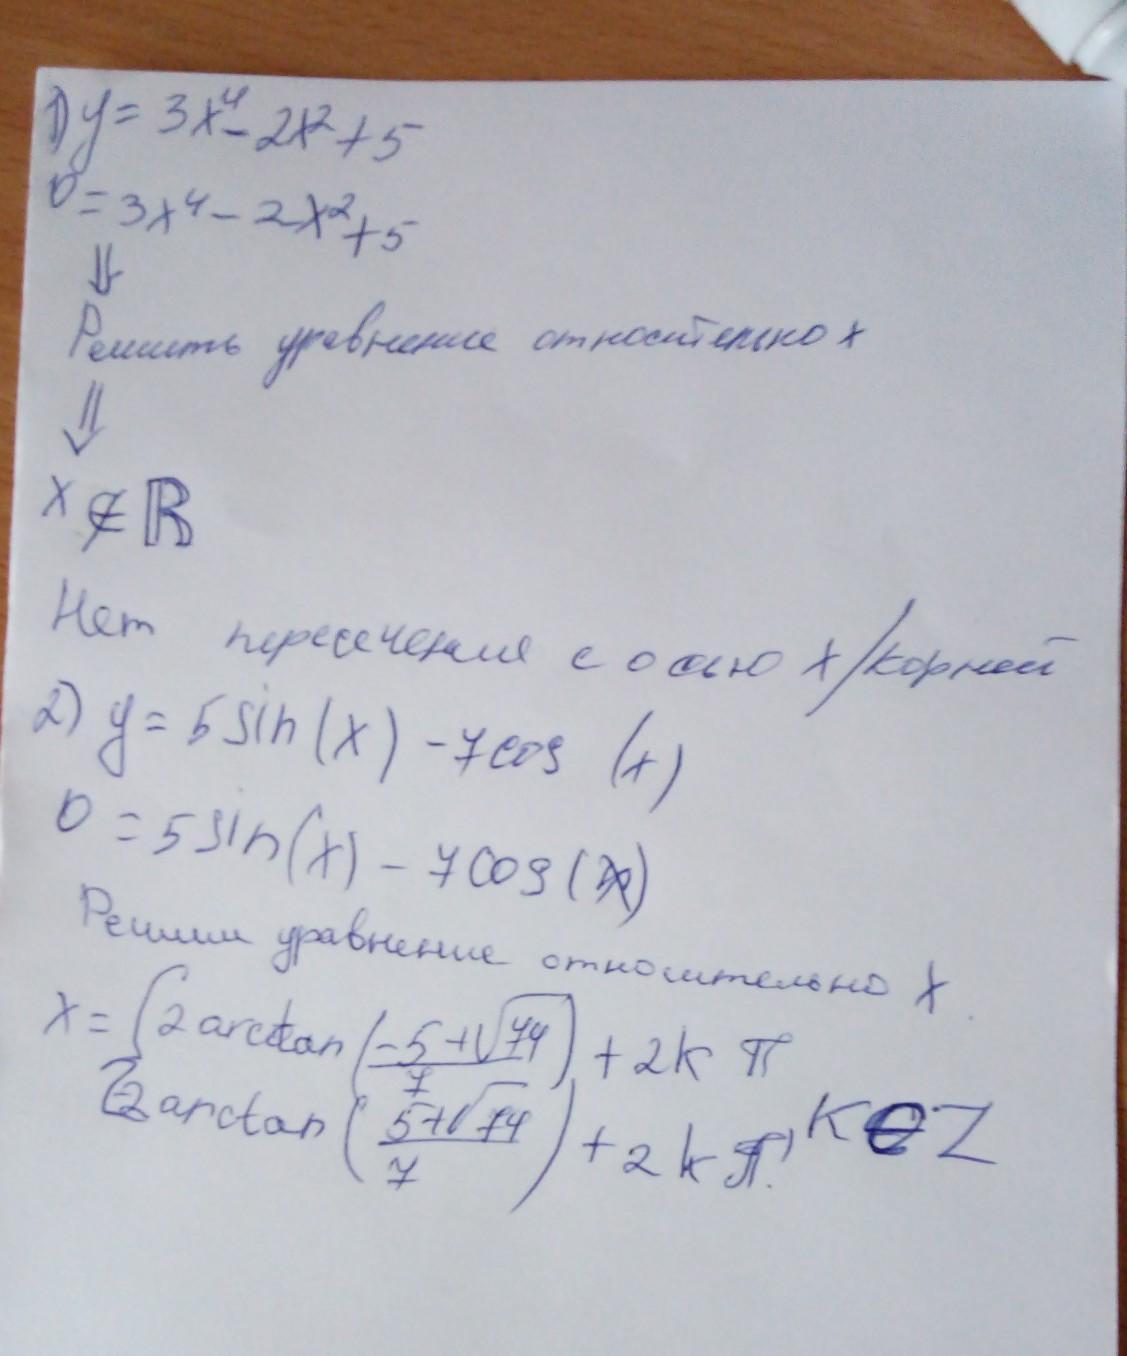 1) y = 3x⁴ - 2x² + 5
0 = 3x⁴ - 2x² + 5
⇓
Решить уравнение относительно x
⇓
x ∉ ℝ
Нет пересечения с осью x/корней
2) y = 5 sin(x) - 7 cos (x)
0 = 5 sin(x) - 7 cos(x)
Решим уравнение относительно x
x = { 2 arctan (-5 + √74 / 7) + 2k π
-2 arctan (5 + √74 / 7) + 2kπ, K ∈ Z